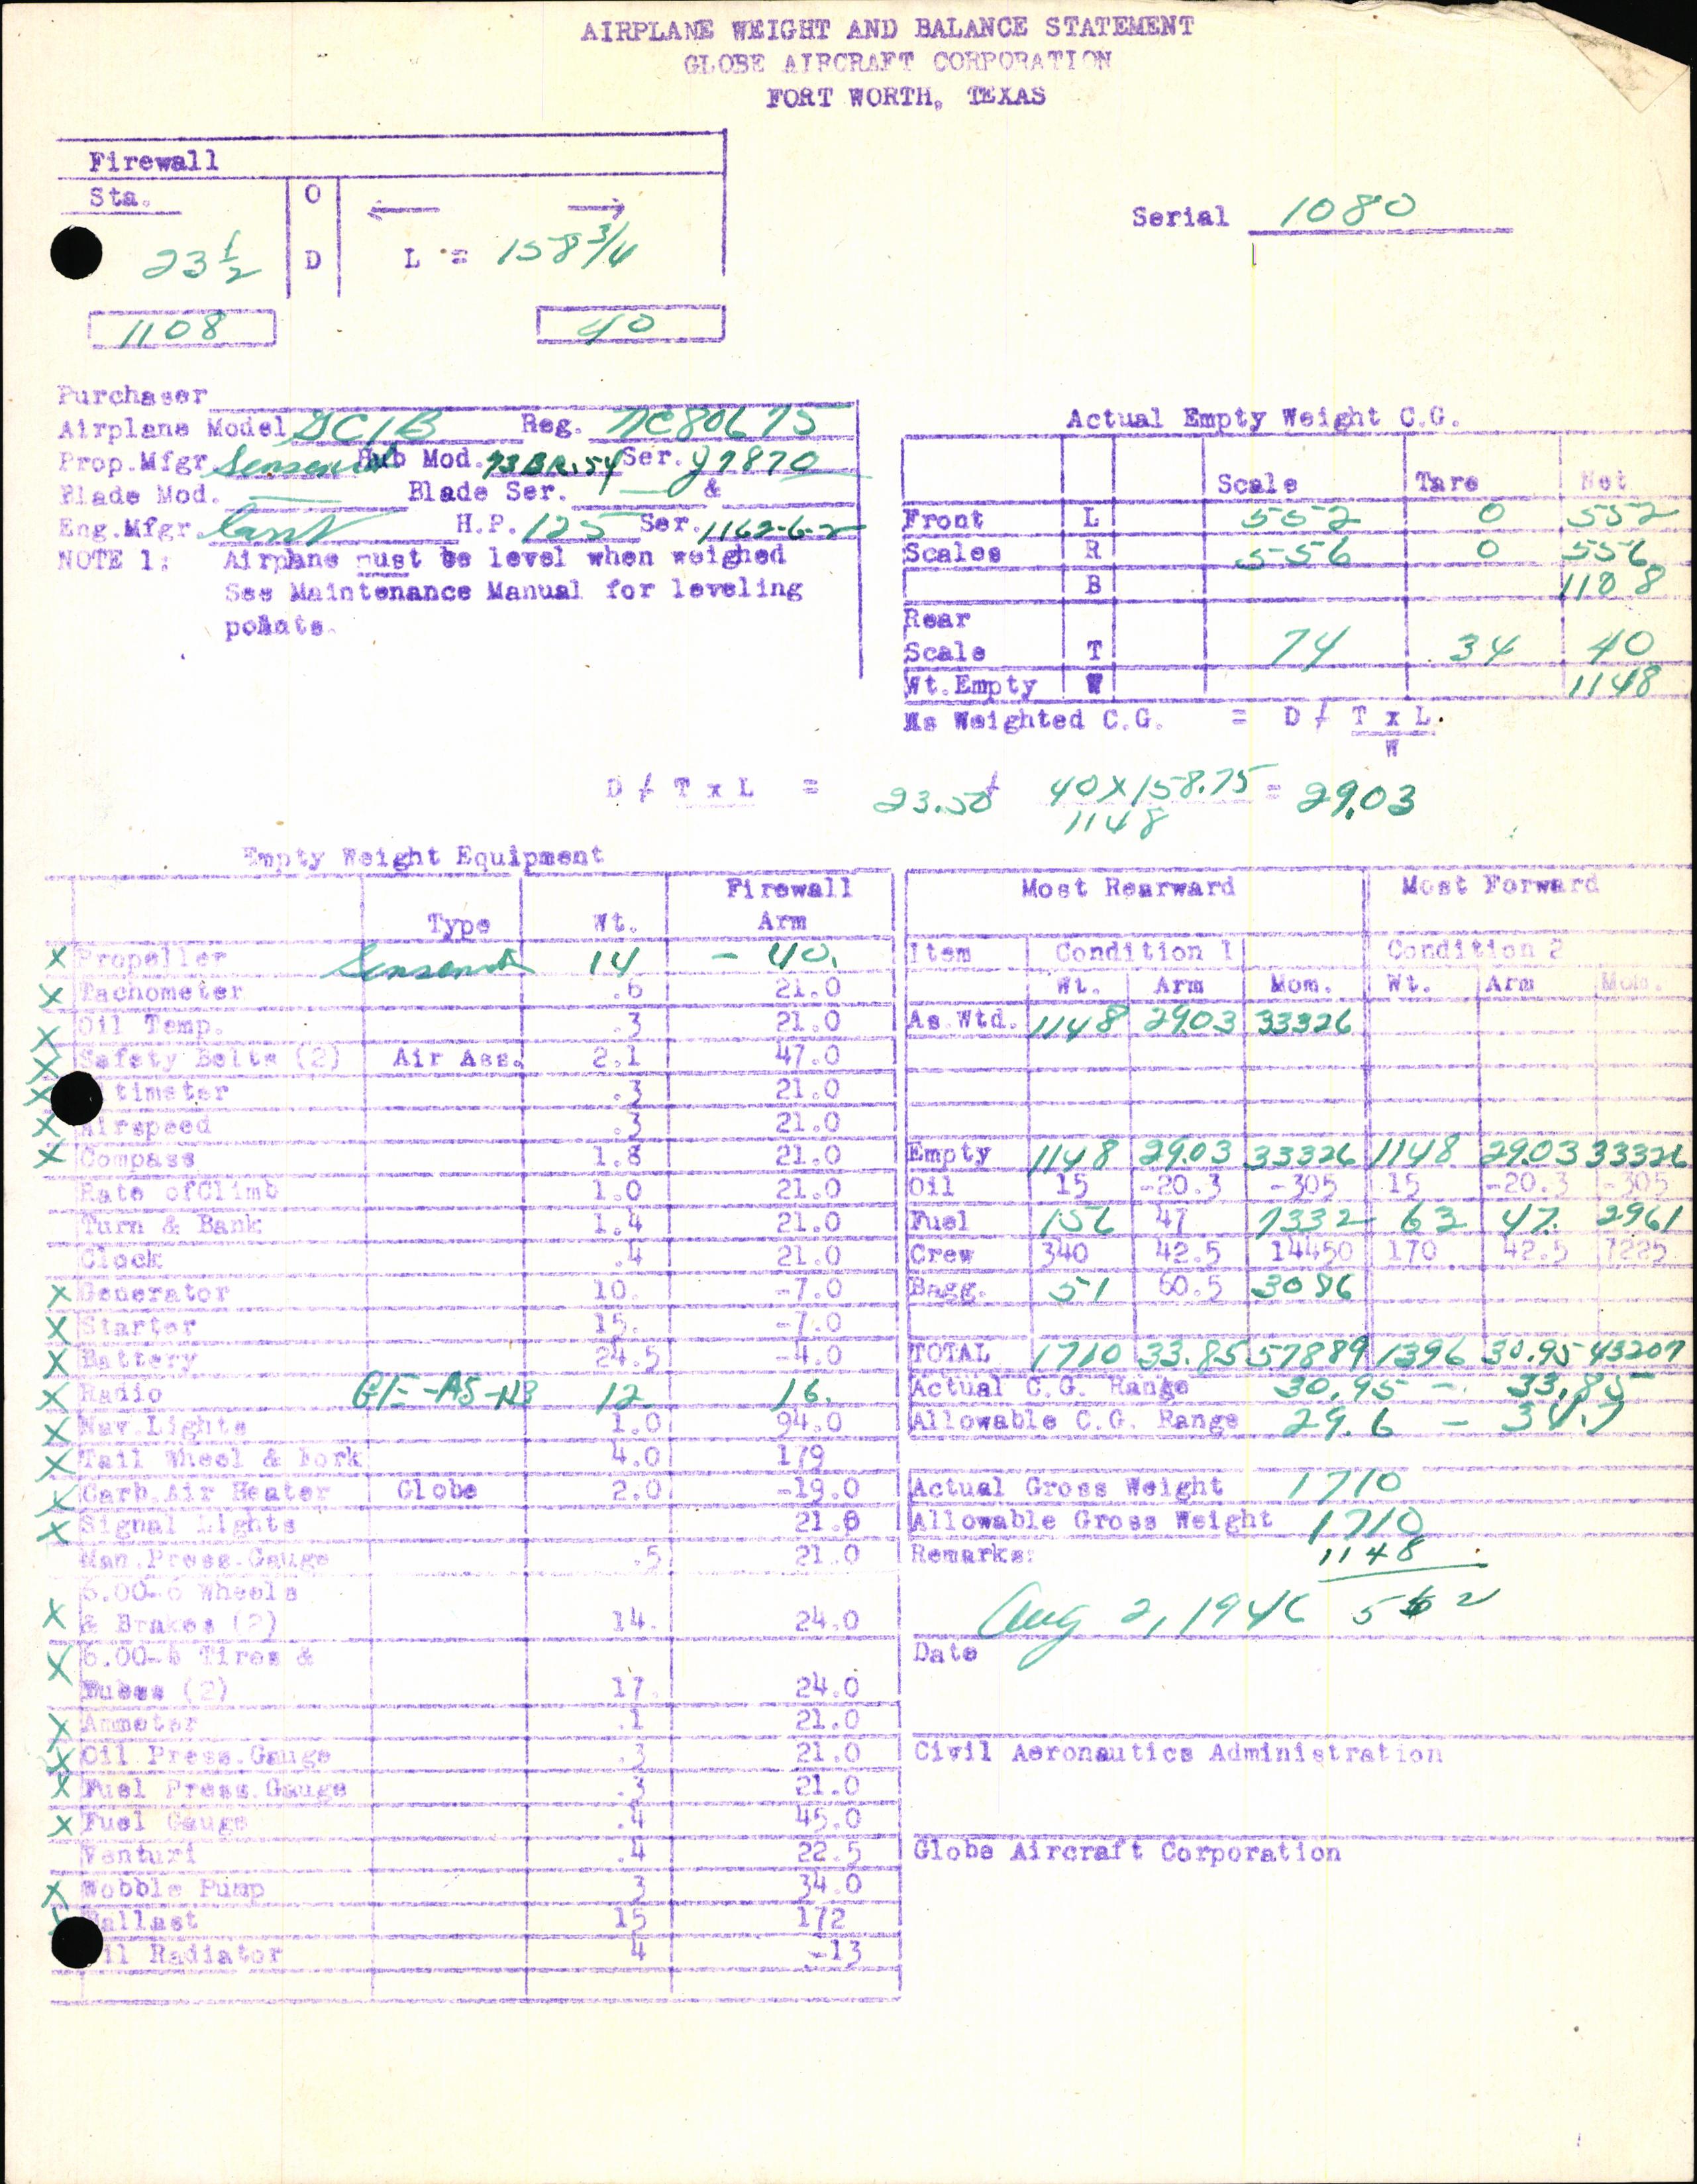 AIRPLANE WEIGHT AND BALANCE STATEMENT
GLOBE AIRCRAFT CORPORATION
FORT WORTH, TEXAS
Firewall
Sta. O ← →
23 1/2 D L = 158 3/4
1108 40
Serial 1080
Purchaser
Airplane Model GC1B Reg. NC80675
Prop.Mfgr Sensenich Hub Mod. 73BR.54 Ser. 7870
Blade Mod. — Blade Ser. — &
Eng.Mfgr. Cont H.P. 125 Ser. 1162-6-2
NOTE 1: Airplane must be level when weighed
See Maintenance Manual for leveling
points.
Actual Empty Weight C.G.
Scale Tare Net
Front L 552 0 552
Scales R 556 0 556
B 1108
Rear
Scale T 74 34 40
Wt.Empty W 1148
As Weighted C.G. = D / T x L.
W
D / T x L = 23.50 + 40 X 158.75 = 29.03
1148
Empty Weight Equipment
Type Wt. Firewall Arm
X Propeller Sensenich 14 - 40.
X Tachometer .6 21.0
X Oil Temp. .3 21.0
X Safety Belts (2) Air Ass. 2.1 47.0
X timeter .3 21.0
X Airspeed .3 21.0
X Compass 1.8 21.0
Rate ofClimb 1.0 21.0
Turn & Bank 1.4 21.0
Clock .4 21.0
X Generator 10. -7.0
X Starter 15. -7.0
X Battery 24.5 -4.0
X Radio 12 16.
X Nav.Lights 1.0 94.0
X Tail Wheel & Fork 4.0 179
X Carb.Air Heater Globe 2.0 -19.0
X Signal Lights 21.0
Man.Press.Gauge .5 21.0
6.00-6 Wheels
X & Brakes (2) 14. 24.0
X 6.00-6 Tires &
Tubes (2) 17. 24.0
X Ammeter .1 21.0
X Oil Press.Gauge .3 21.0
X Fuel Press.Gauge .3 21.0
X Fuel Gauge .4 45.0
Venturi .4 22.5
X Wobble Pump 3 34.0
X Ballast 15 172
il Radiator 4 -13
Most Rearward Most Forward
Item Condition 1 Condition 2
Wt. Arm Mom. Wt. Arm Mom.
As Wtd. 1148 29.03 33326
Empty 1148 29.03 33326 1148 29.03 33326
Oil 15 -20.3 -305 15 -20.3 -305
Fuel 156 47 7332 63 47. 2961
Crew 340 42.5 14450 170 42.5 7225
Bagg. 51 60.5 3086
TOTAL 1710 33.85 57889 1396 30.95 43207
Actual C.G. Range 30.95 - 33.85
Allowable C.G. Range 29.6 -
Actual Gross Weight 1710
Allowable Gross Weight 1710
Remarks: 1148
Aug 2, 1946 562
Date
Civil Aeronautics Administration
Globe Aircraft Corporation